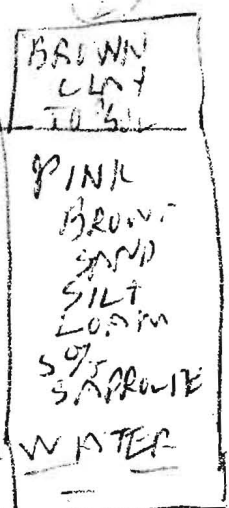 BROWN
CLAY
PINK
BROWN
SAND
SILT
LOAM
5%
SAPROLITE
WATER